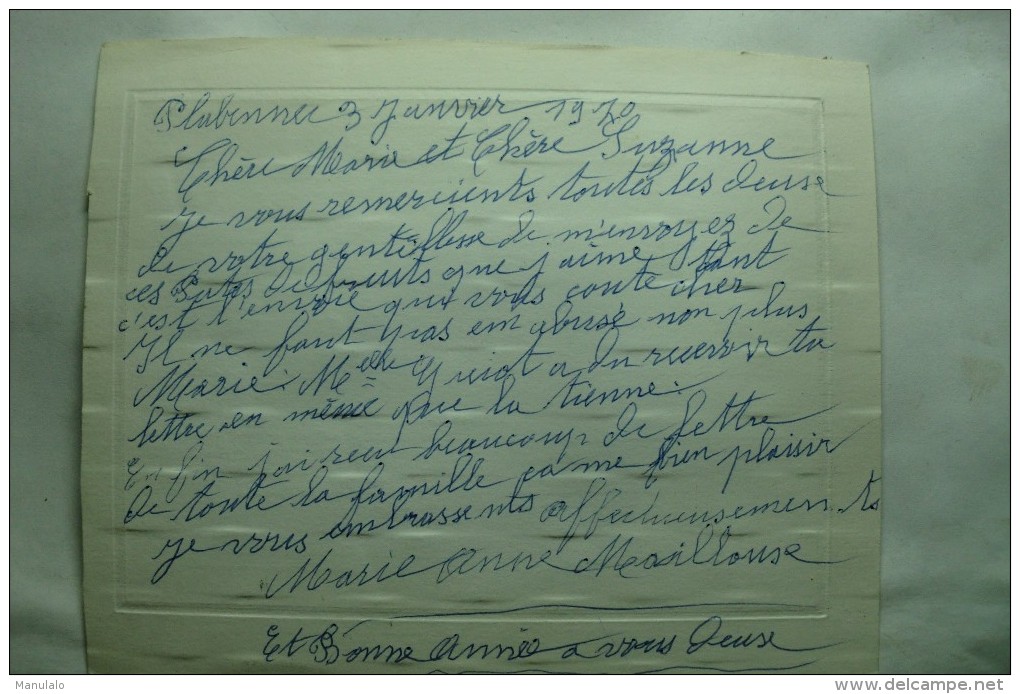 Plabennec 3 Janvier 1970
Chère Marie et Chère Suzanne
je vous remercients toutes les deuse
de votre gentillesse de m'envoyez de
ces Pates de fruits que j'aime tant
c'est l'envoie qui vous coute cher
Il ne faut pas em abusé non plus
Marie. Melle a du recevoir ta
lettre en même que la tienne.
Enfin j'ai reçu beaucoup de lettre
de toute la famille ça me fien plaisir
je vous embrassents affectueusements
Marie Anne Maillouse
Et Bonne Année a vous deuse
Manulalo
www.delcampe.net